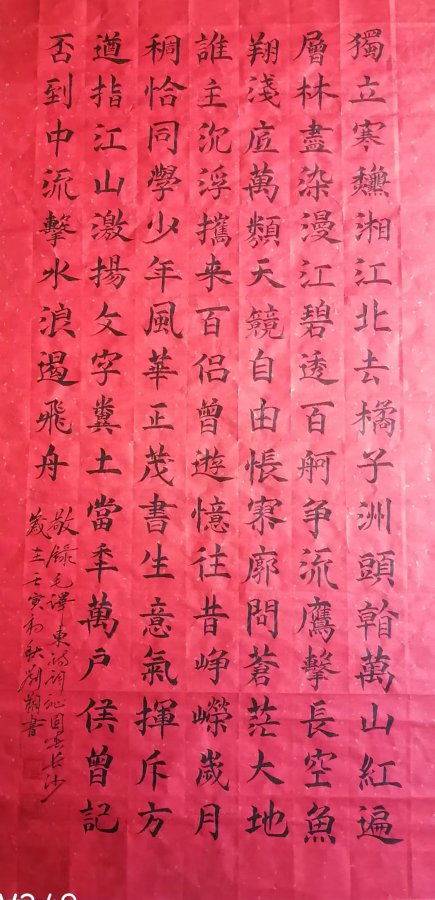 獨立寒龝湘江北去橘子洲頭看萬山紅遍
層林盡染漫江碧透百舸争流鷹擊長空魚
翔淺底萬類天競自由悵寥廓問蒼茫大地
誰主沉浮攜来百侣曾遊憶往昔崢嶸嵗月
稠恰同學少年風華正茂書生意氣揮斥方
遒指江山激揚文字糞土當年萬户侯曾記
否到中流擊水浪遏飛舟
敬録毛澤東詞沁園春长沙
嵗在壬寅初秋劉蘭書